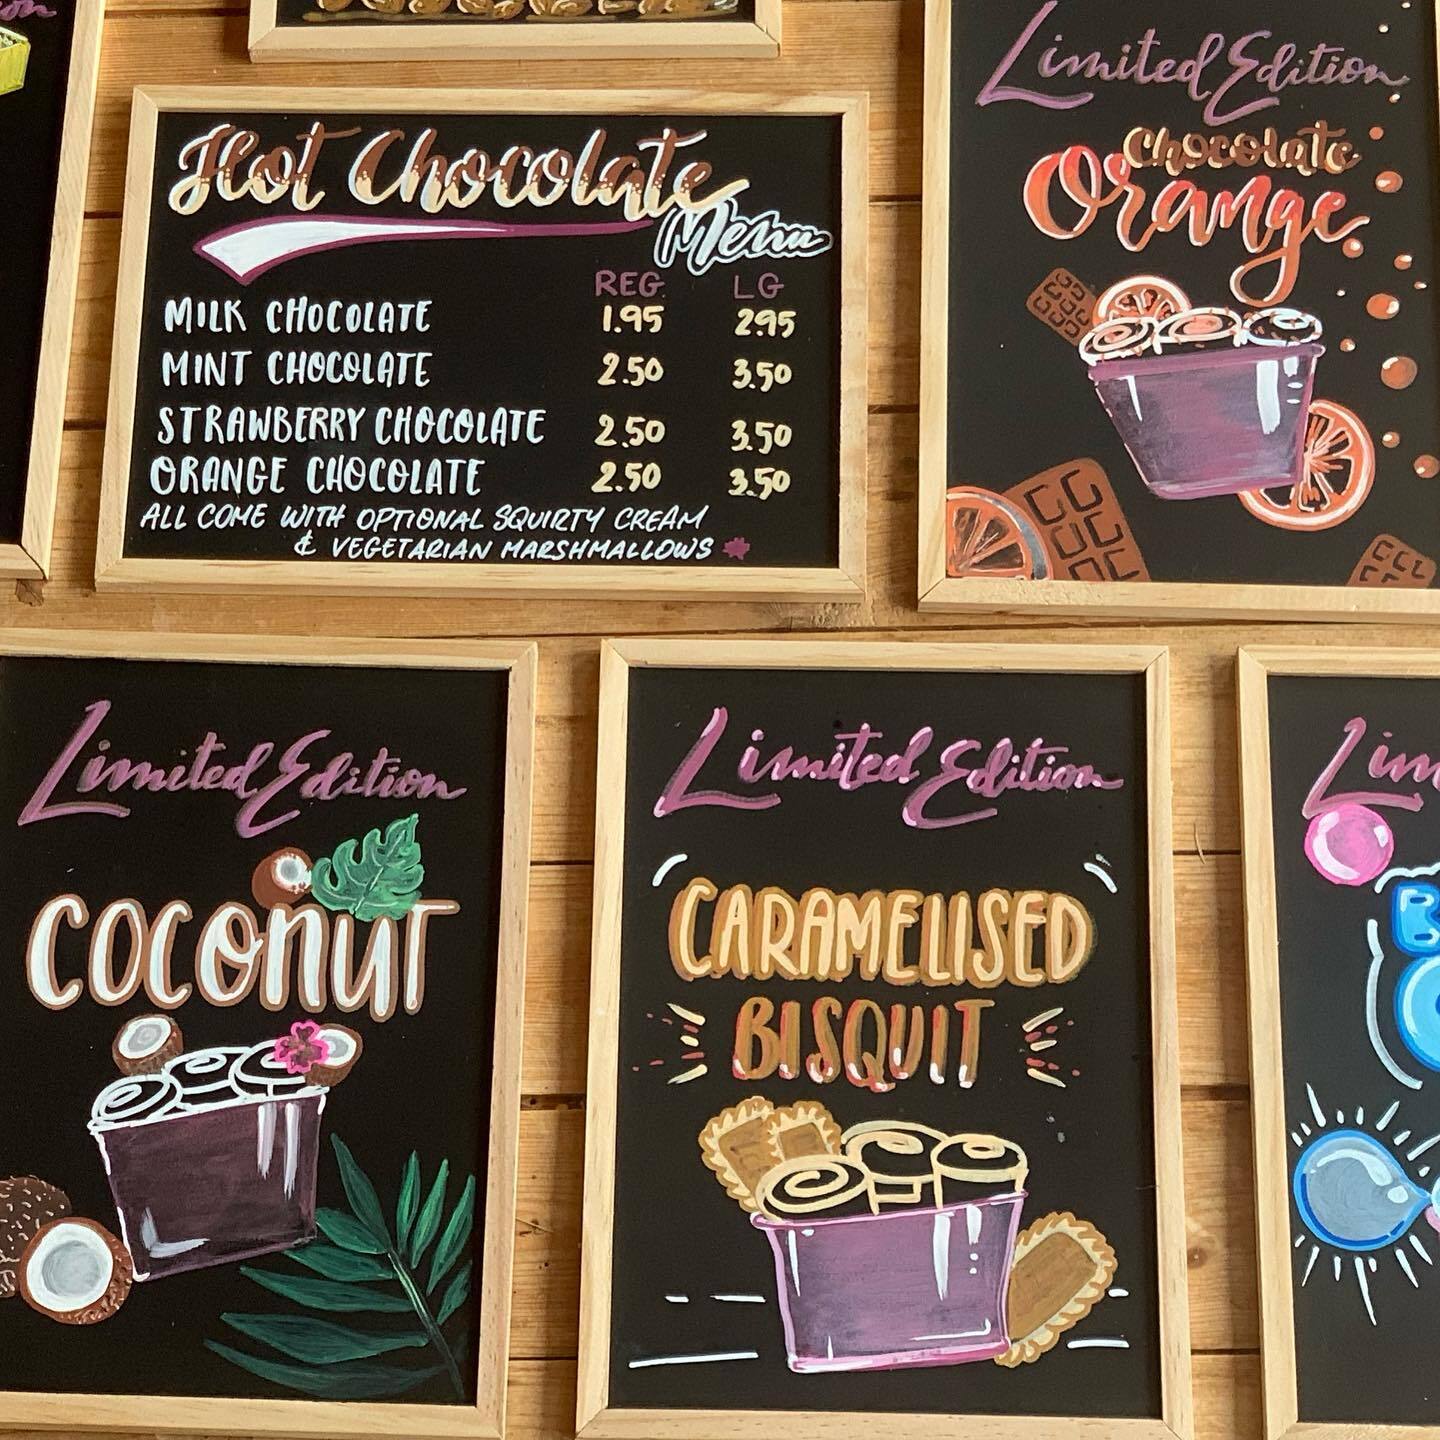 Hot Chocolate
Menu
REG LG
MILK CHOCOLATE 1.95 2.95
MINT CHOCOLATE 2.50 3.50
STRAWBERRY CHOCOLATE 2.50 3.50
ORANGE CHOCOLATE 2.50 3.50
ALL COME WITH OPTIONAL SQUIRTY CREAM
& VEGETARIAN MARSHMALLOWS
Limited Edition
Chocolate
Orange
Limited Edition
COCONUT
Limited Edition
CARAMELISED
BISQUIT